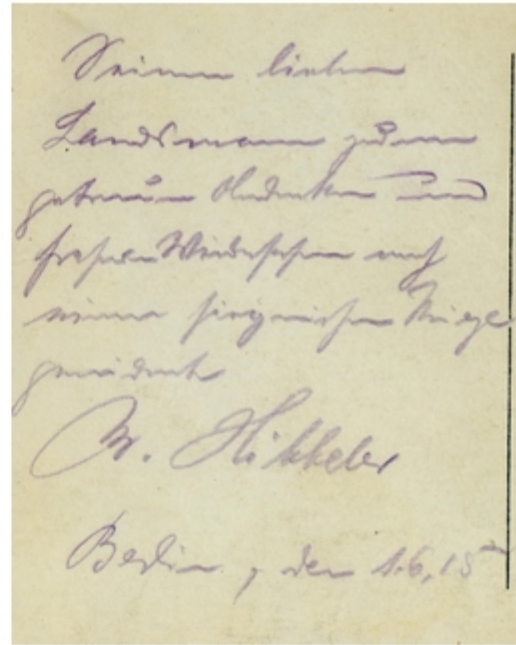 Seinem lieben
Landsmann zum
getreuen Andenken und
frohen Wiedersehen nach
einem siegreichen Kriege
gewidmet
Berlin, den 1.6.15